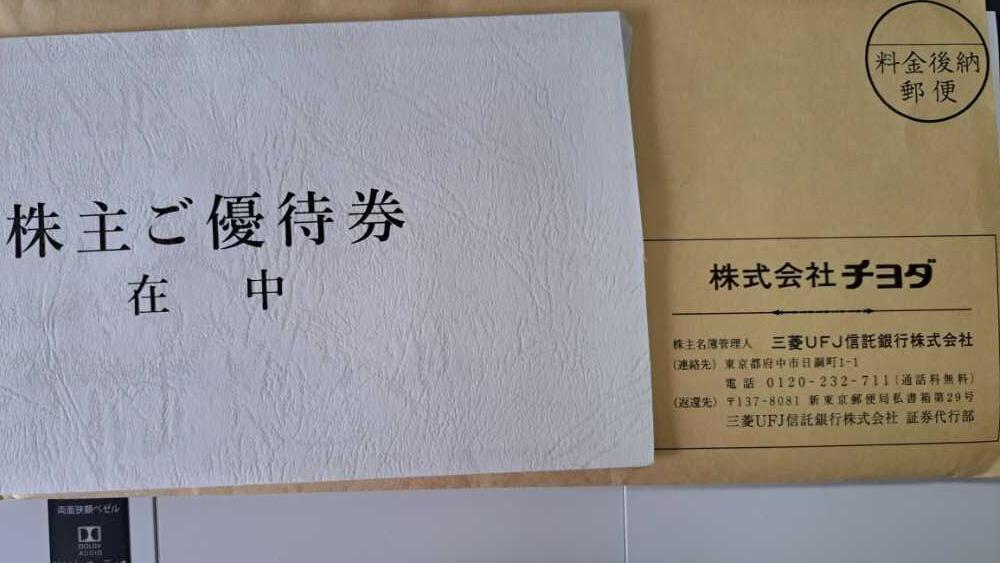 料金後納
郵便
株主ご優待券
在中
株式会社チヨダ
株主名簿管理人 三菱UFJ信託銀行株式会社
(連絡先) 東京都府中市日鋼町1-1
電話 0120-232-711(通話料無料)
(返還先) 〒137-8081 新東京郵便局私書箱第29号
三菱UFJ信託銀行株式会社 証券代行部
両面狭額ベゼル
DOLBY
AUDIO